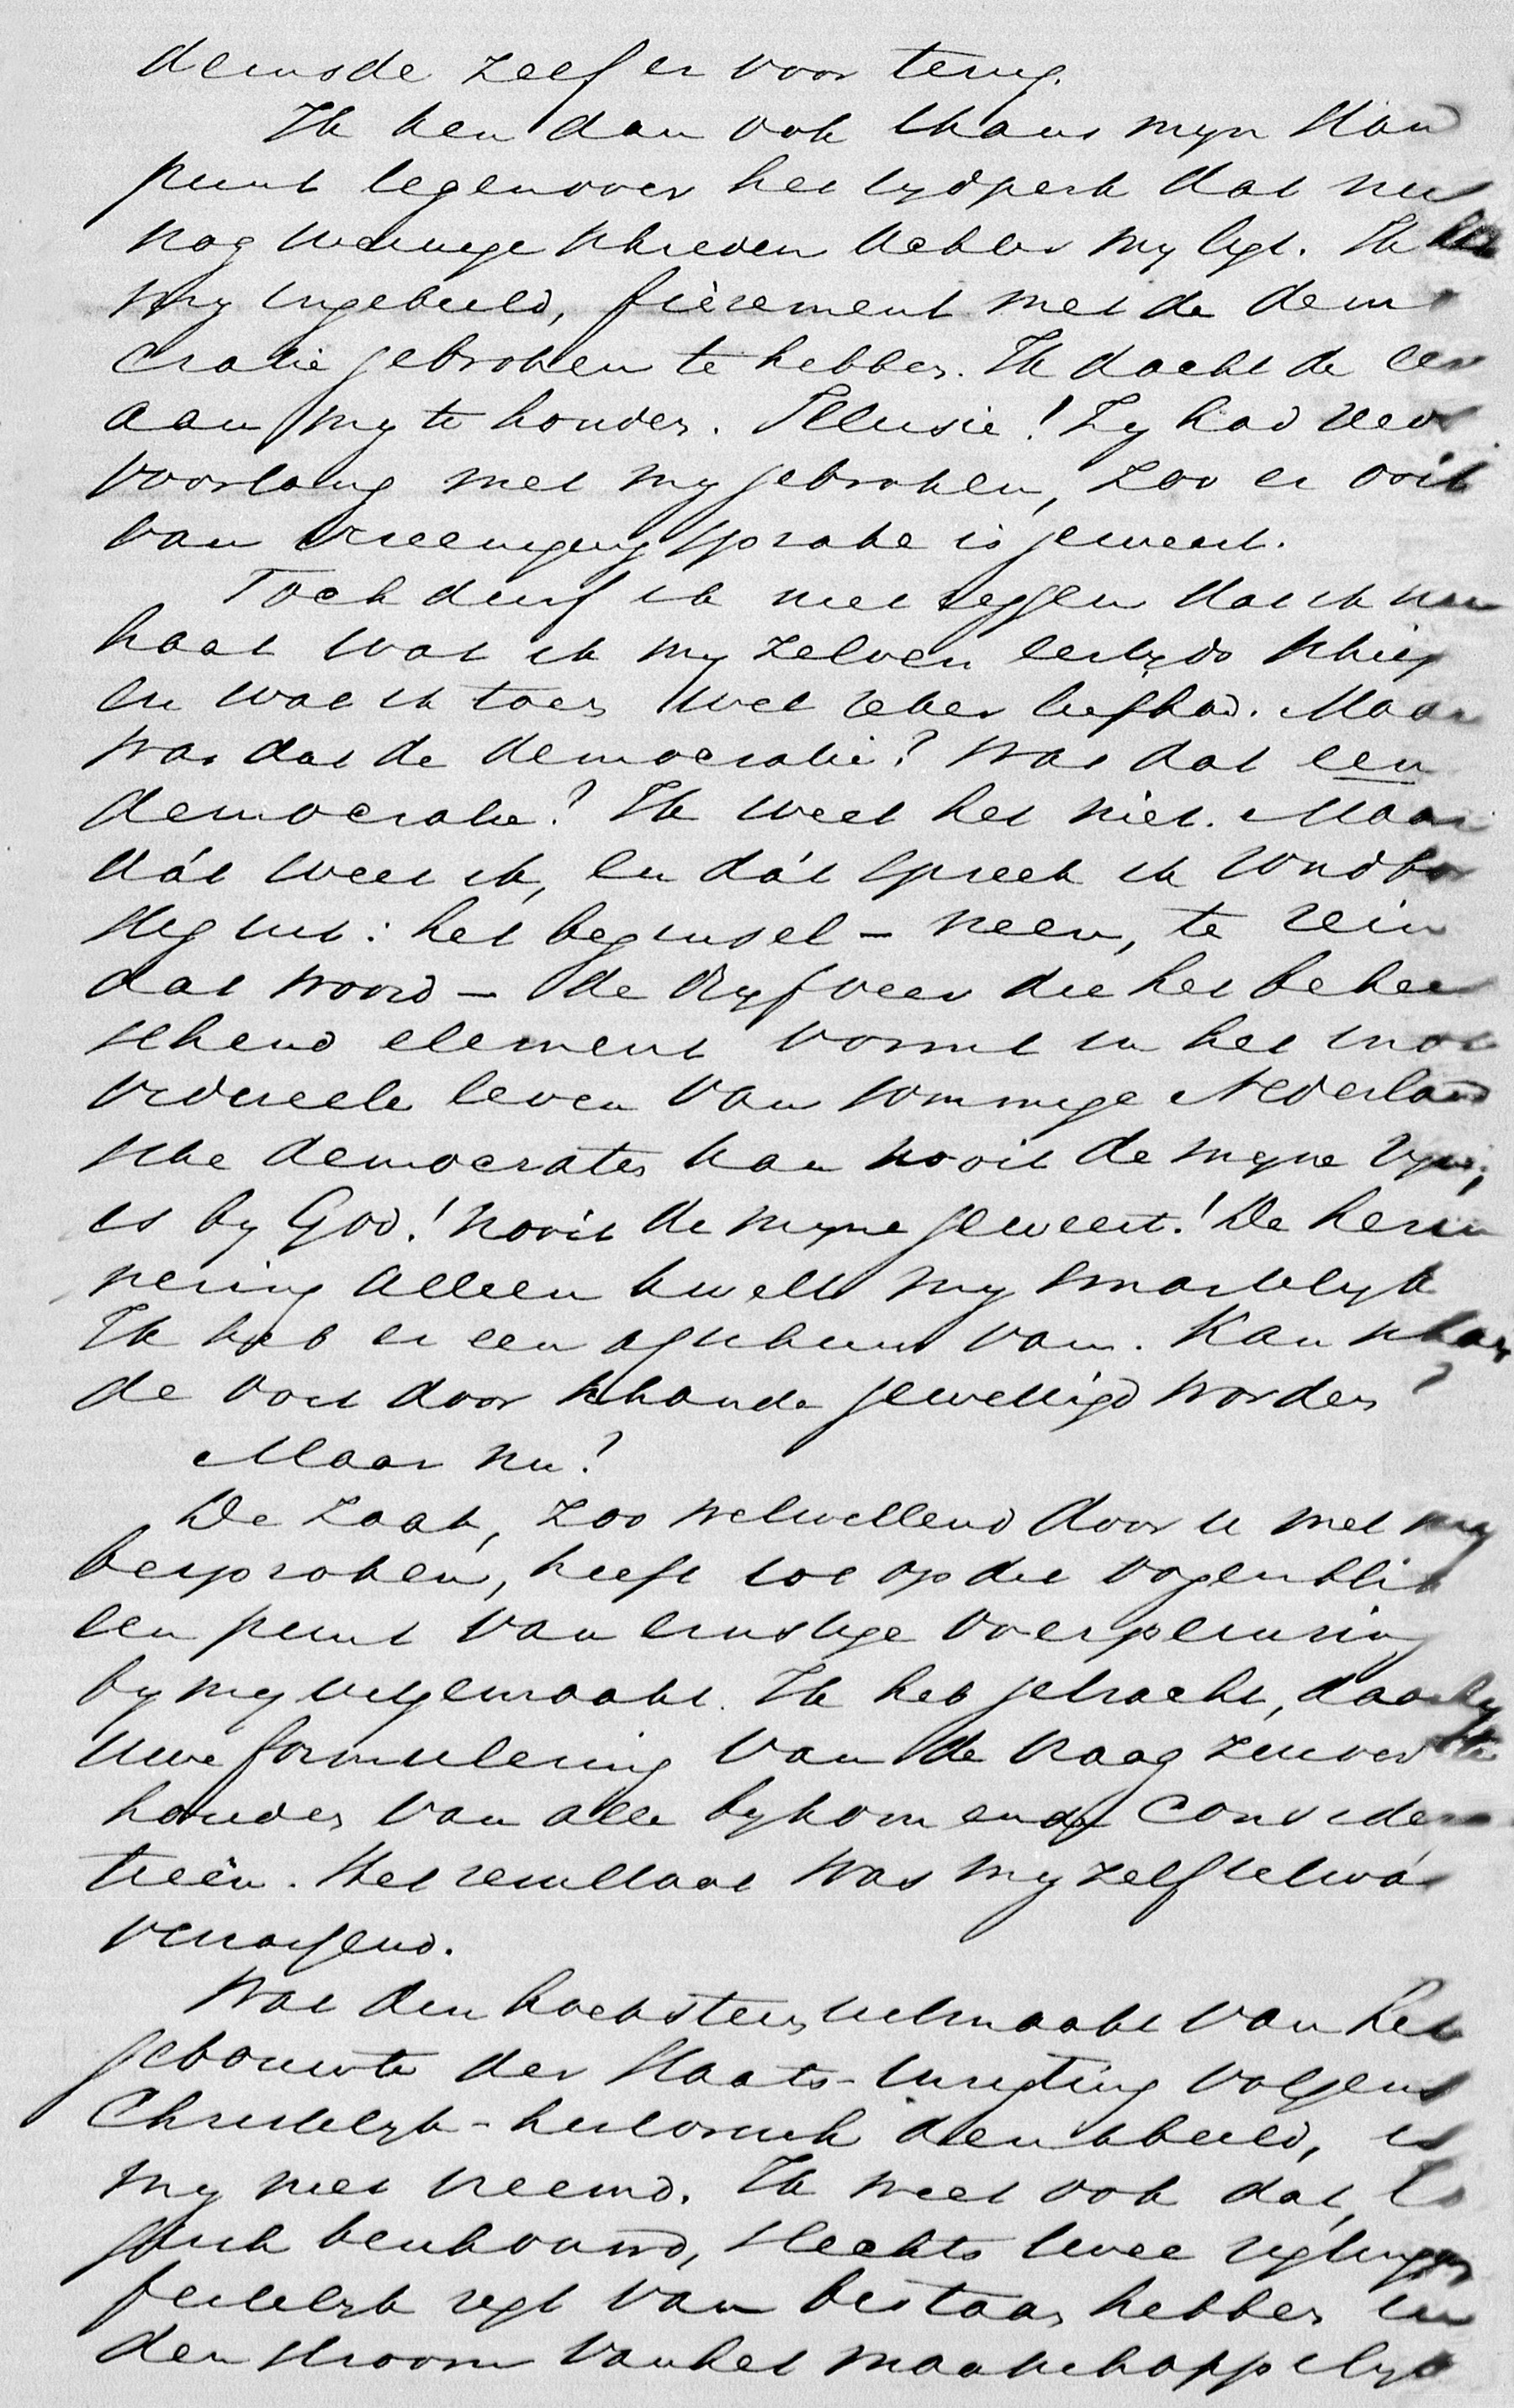 deinsde zelf er voor terug.
Ik ken dan ook thans mijn stand
punt tegenover het tydperk dat nu
nog weinige schreden achter my ligt. Ik heb
my ingebeeld, fièrement met de demo
cratie gebroken te hebben. Ik dacht de eer
aan my te houden. Illusie! Zy had reeds
voorlang met my gebroken, zoo er ooit
van vereeniging sprake is geweest.
Toch durf ik niet zeggen dat ik nu
haat wat ik my zelven eertyds schiep
en wat ik toen wel zeker liefhad. Maar
was dat de democratie? Was dat een
democratie? Ik weet het niet. Maar
dát weet ik, en dát spreek ik rondbor
stig uit: het beginsel – neen, te rein
dat woord – de dryfveer die het beheer
schend element vormt in het indi
vidueele leven van sommige Nederland
sche democraten kan nooit de myne zyn,
is by God! nooit de myne geweest! De herin
nering alleen kwelt my smartelyk
Ik heb er een afschuw van. Kan schan
de ooit door schande gewettigd worden?
Maar nu?
De zaak, zoo welwillend door u met my
besproken, heeft tot op dit oogenblik
een punt van ernstige overpeinzing
by my uitgemaakt. Ik heb getracht, daarby
uwe formulering van de vraag zuiver te
houden van alle bykomende considera
tieën. Het resultaat was my zelf ietwat
verrassend.
Wat den hoeksteen uitmaakt van het
gebouwte der Staats-inrigting volgens
Christelyk-historisch denkbeeld, is
my niet vreemd. Ik weet ook dat, lo
gisch beschouwd, slechts twee rigtingen
feitelyk regt van bestaan hebben in
den stroom van het maatschappelyk